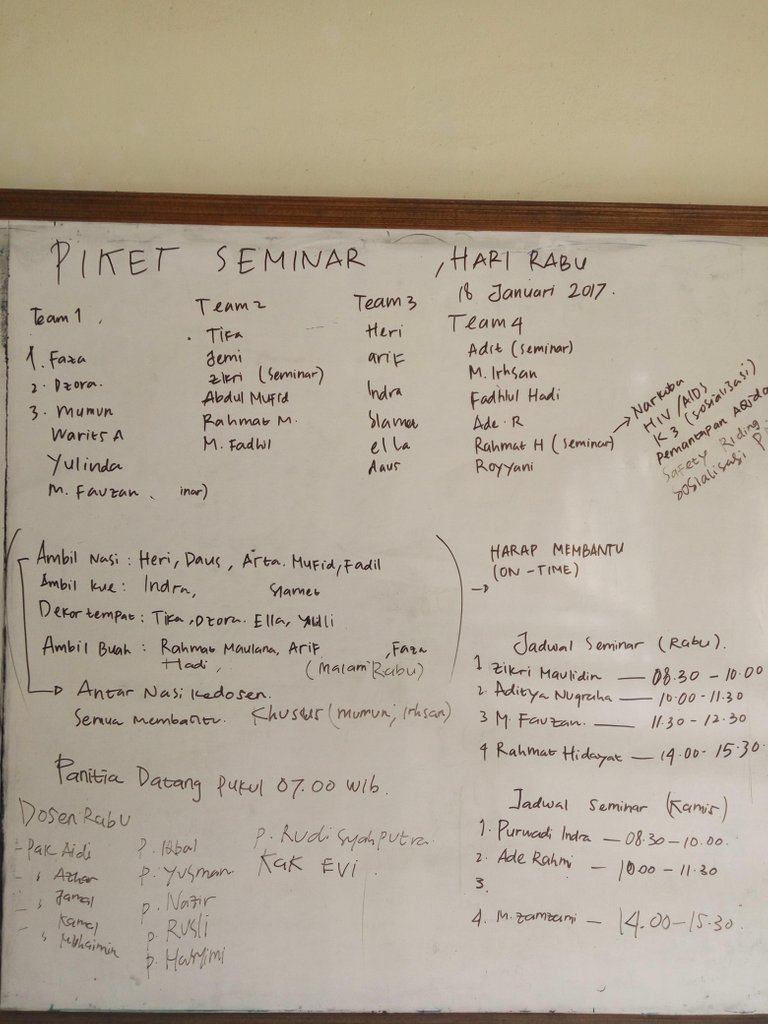 PIKET SEMINAR , HARI RABU
18 Januari 2017.
Team 1 .
1. Faza
2. Dzora.
3. Mumun
Warits A
Yulinda
M. Fauzan inar)
Team 2
Tika
Jemi
Zikri (Seminar)
Abdul Mufid
Rahmat M.
M. Fadhl
Team 3
Heri
Arif
Indra
Slamet
ella
Daus
Team 4
Adit (seminar)
M. Irhsan
Fadhlul Hadi
Ade. R
Rahmat H (seminar)
Royyani
→ Narkoba
HIV/AIDS
K3 (sosialisasi)
Pemantapan Aqida
Safety Riding
Sosialisasi
Ambil Nasi : Heri, Daus, Arta. Mufid, Fadil
Ambil kue : Indra, Slamet
Dekor tempat : Tika, Dzora. Ella, Yuli
Ambil Buah : Rahmat Maulana, Arif , Faza
Hadi, (Malam Rabu)
→ Antar Nasi kedosen.
Semua Membantu. Khusus (Mumun, Irhsan)
HARAP MEMBANTU
→ (ON-TIME)
Panitia Datang pukul 07.00 WIB.
Jadwal Seminar (Rabu).
1 Zikri Maulidin — 08.30 - 10.00
2. Aditya Nugraha — 10.00 - 11.30
3 M. Fauzan. — 11.30 - 12.30
4 Rahmat Hidayat — 14.00 - 15.30
Jadwal Seminar (Kamis)
1. Purwadi Indra — 08.30 - 10.00.
2. Ade Rahmi — 10.00 - 11.30
3.
4. M. Zamzami — 14.00 - 15.30
Dosen Rabu
- Pak Aidi
- " Azhar
- " Jamal
- Kamal
" Muhaimin
P. Iqbal
P. Yusman
P. Nazir
P. Rusli
P. Hasyimi
P. Rudi Syahputra.
Kak EVI.